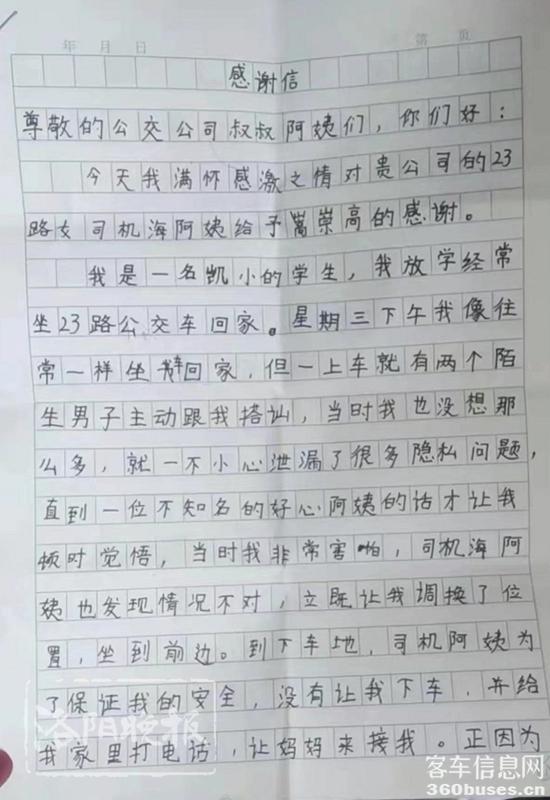 年 月 日 第 页
感谢信
尊敬的公交公司叔叔阿姨们，你们好：
今天我满怀感激之情对贵公司的23
路女司机海阿姨给予嵩崇高的感谢。
我是一名凯小的学生，我放学经常
坐23路公交车回家。星期三下午我像往
常一样坐车回家，但一上车就有两个陌
生男子主动跟我搭讪，当时我也没想那
么多，就一不小心泄漏了很多隐私问题，
直到一位不知名的好心阿姨的话才让我
顿时觉悟，当时我非常害怕，司机海阿
姨也发现情况不对，立既让我调换了位
置，坐到前边。到下车地，司机阿姨为
了保证我的安全，没有让我下车，并给
我家里打电话，让妈妈来接我。正因为
洛阳晚报
客车信息网
360buses.cn